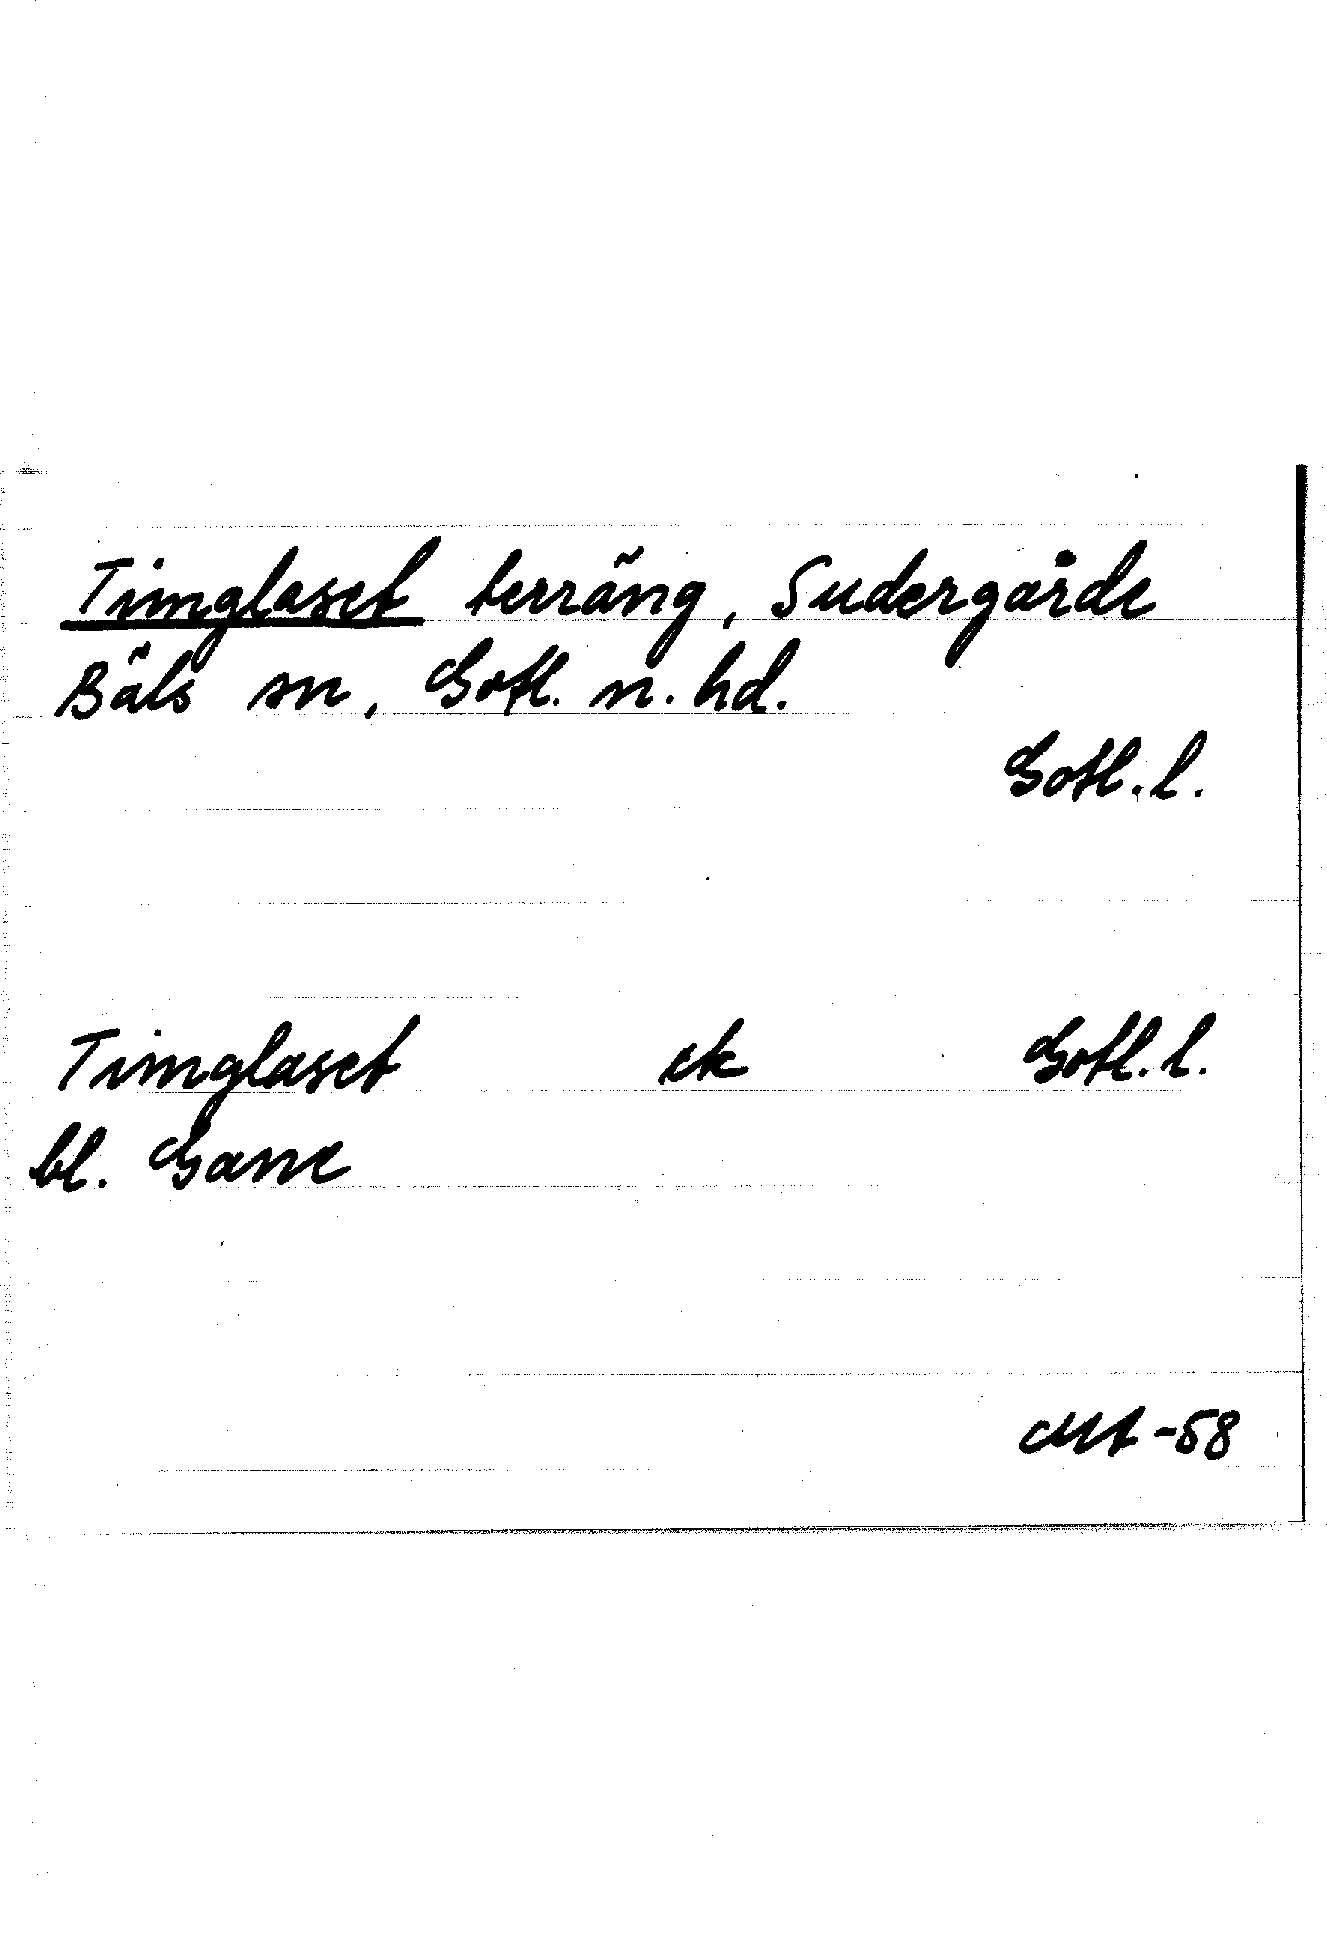 Timglaset terräng, Sudergårde
Bäls sn, Gotl. n. hd.
Gotl. l.
Timglaset ek Gotl. l.
bl. Gane
-58